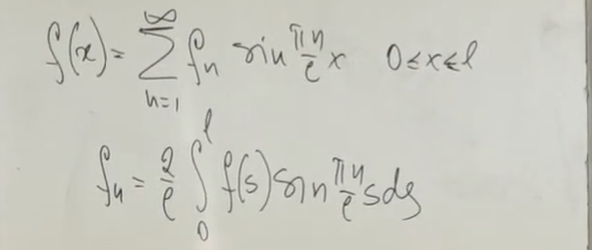 f(x) = ∑_{n=1}^{∞} f_n sin (πn/ℓ) x   0 ≤ x ≤ ℓ
f_n = (2/ℓ) ∫_0^ℓ f(s) sin (πn/ℓ) s ds